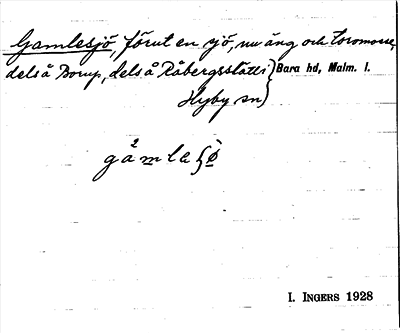 Gamlesjö, förut en sjö, nu äng och torvmosse,
dels å Borup, dels å Råbergsslätt i } Bara hd, Malm. l.
Hyby sn)
I. INGERS 1928